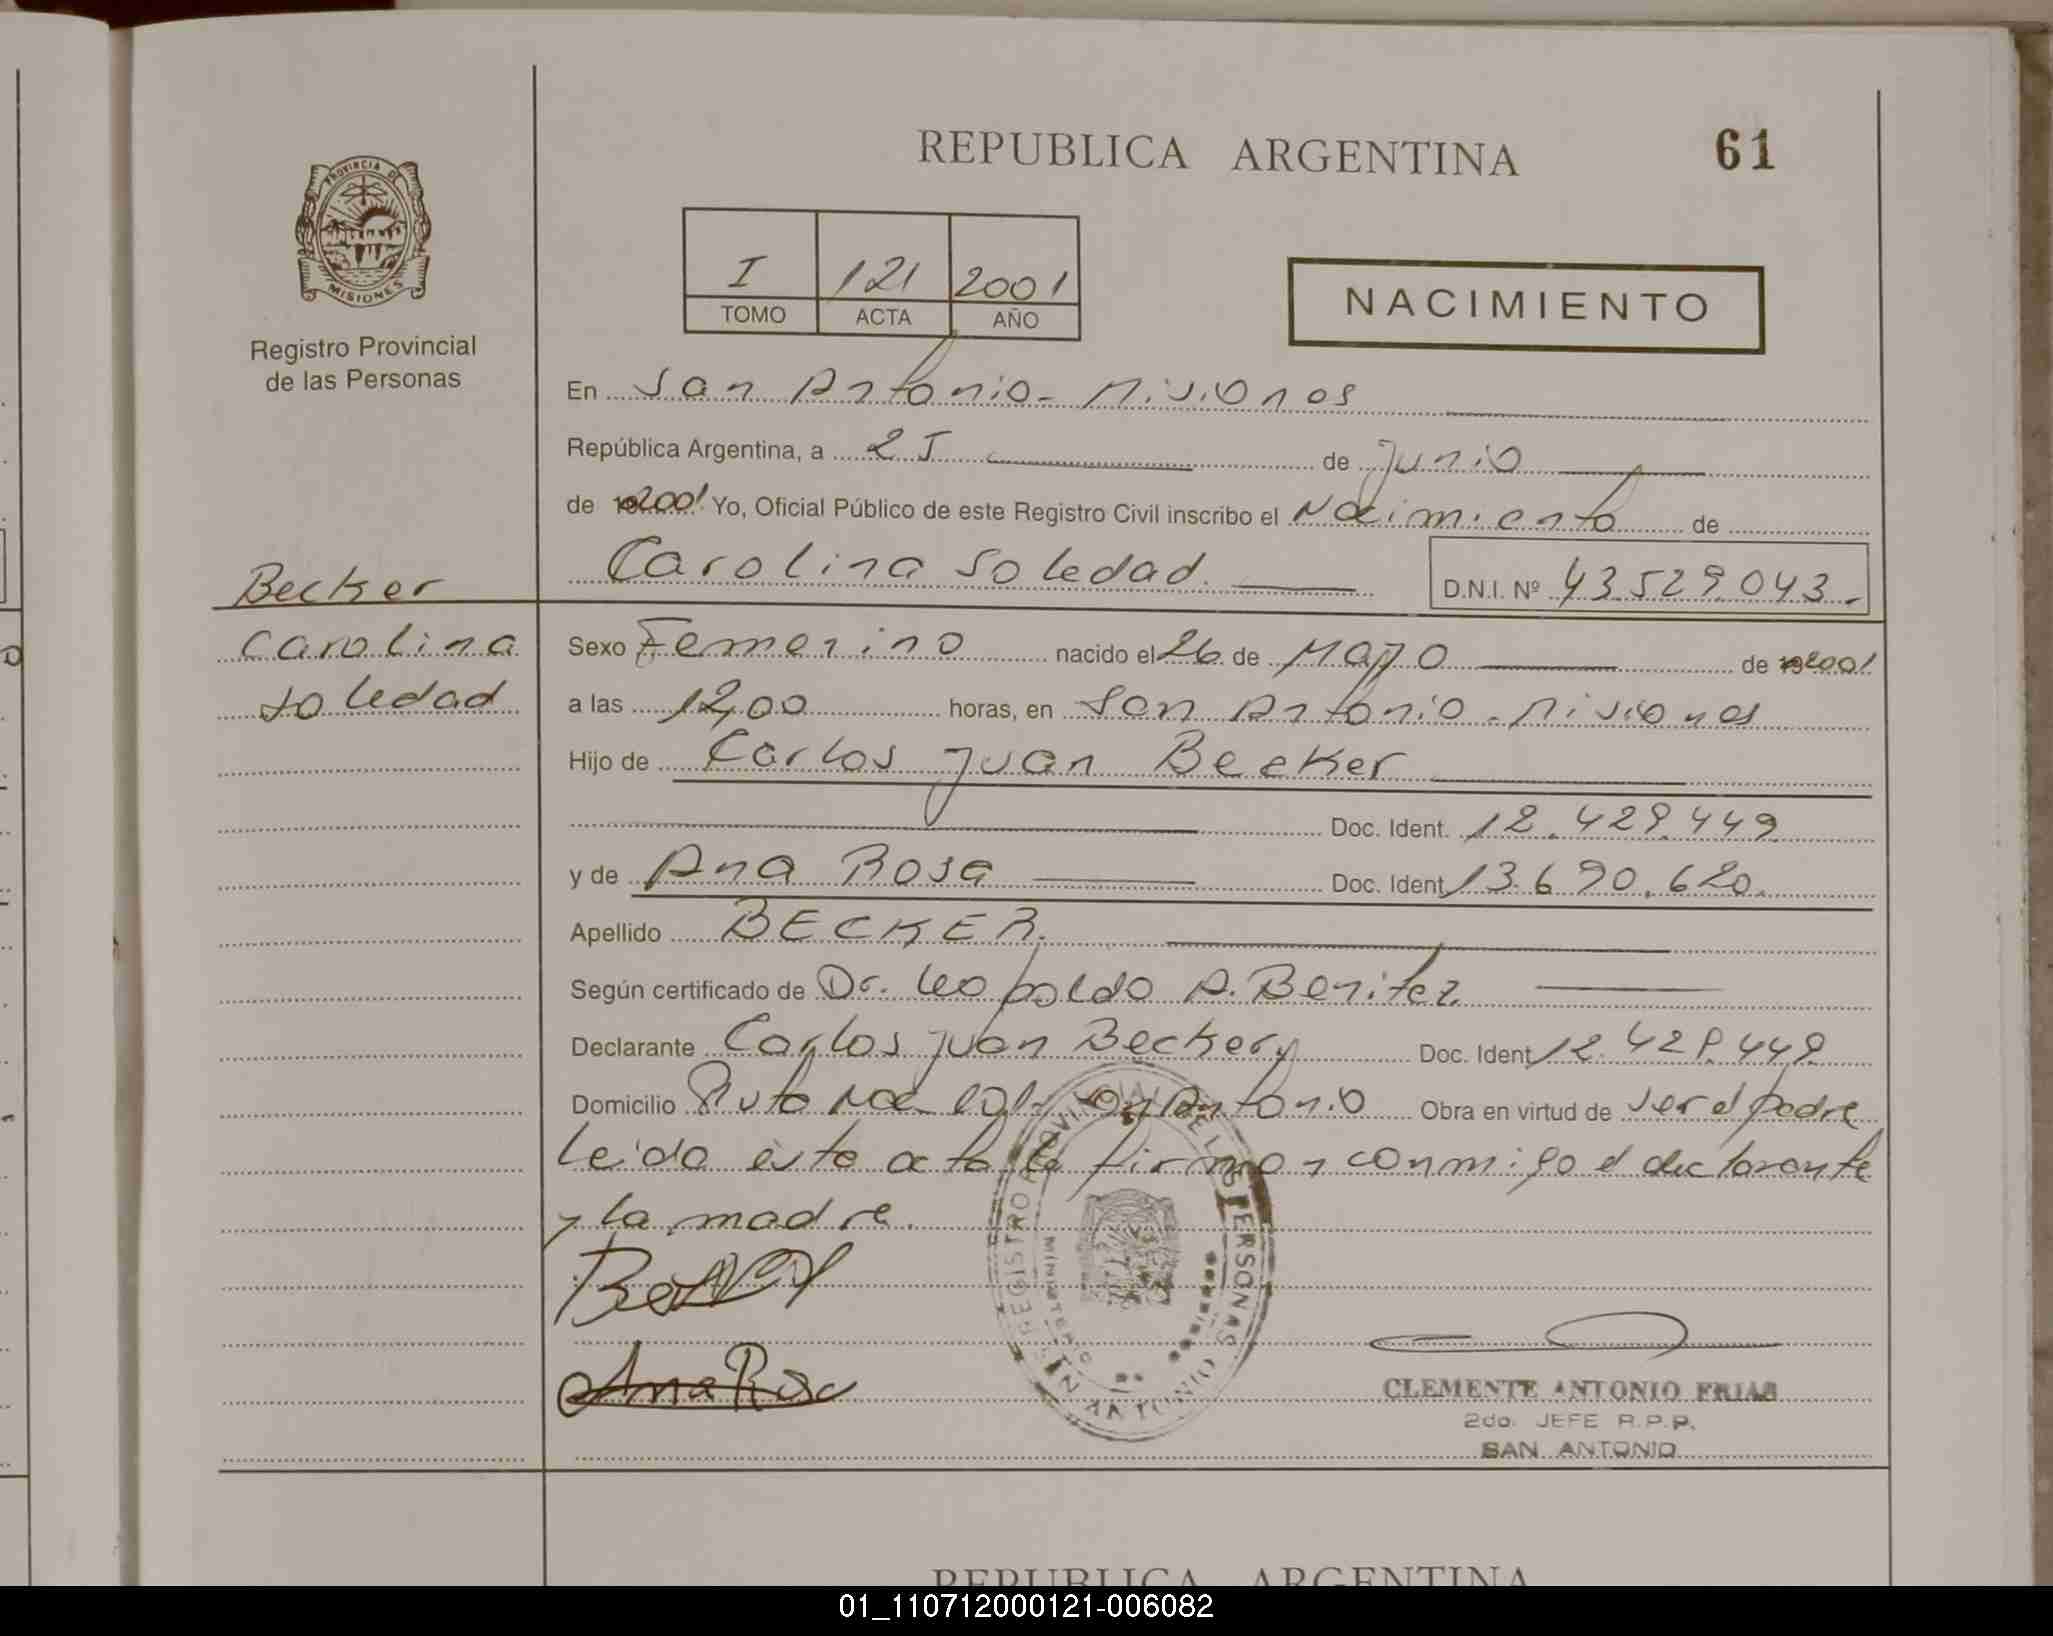 REPUBLICA ARGENTINA
61
PROVINCIA DE
MISIONES
Registro Provincial
de las Personas
I 121 2001
TOMO ACTA AÑO
NACIMIENTO
En San Antonio - Misiones
República Argentina, a 25 de Junio
de 2001 Yo, Oficial Público de este Registro Civil inscribo el Nacimiento de
Carolina Soledad. D.N.I. Nº 43.529.043.-
Becker
Carolina
Soledad
Sexo Femenino nacido el 26 de Mayo de 2001
a las 12,00 horas, en San Antonio - Misiones
Hijo de Carlos Juan Becker
Doc. Ident. 12.429.449
y de Ana Rosa Doc. Ident 13.690.620.
Apellido BECKER.
Según certificado de Dr. Leopoldo A. Benitez
Declarante Carlos Juan Becker Doc. Ident 12.429.449
Domicilio Ruta Antonio Obra en virtud de ser el padre
Leida ésta acta la firman conmigo el declarante
y la madre.
Ana Rosa
REGISTRO PROVINCIAL DE LAS PERSONAS
CLEMENTE ANTONIO FRIAS
2do. JEFE R.P.P.
SAN ANTONIO
REPUBLICA ARGENTINA
01_110712000121-006082